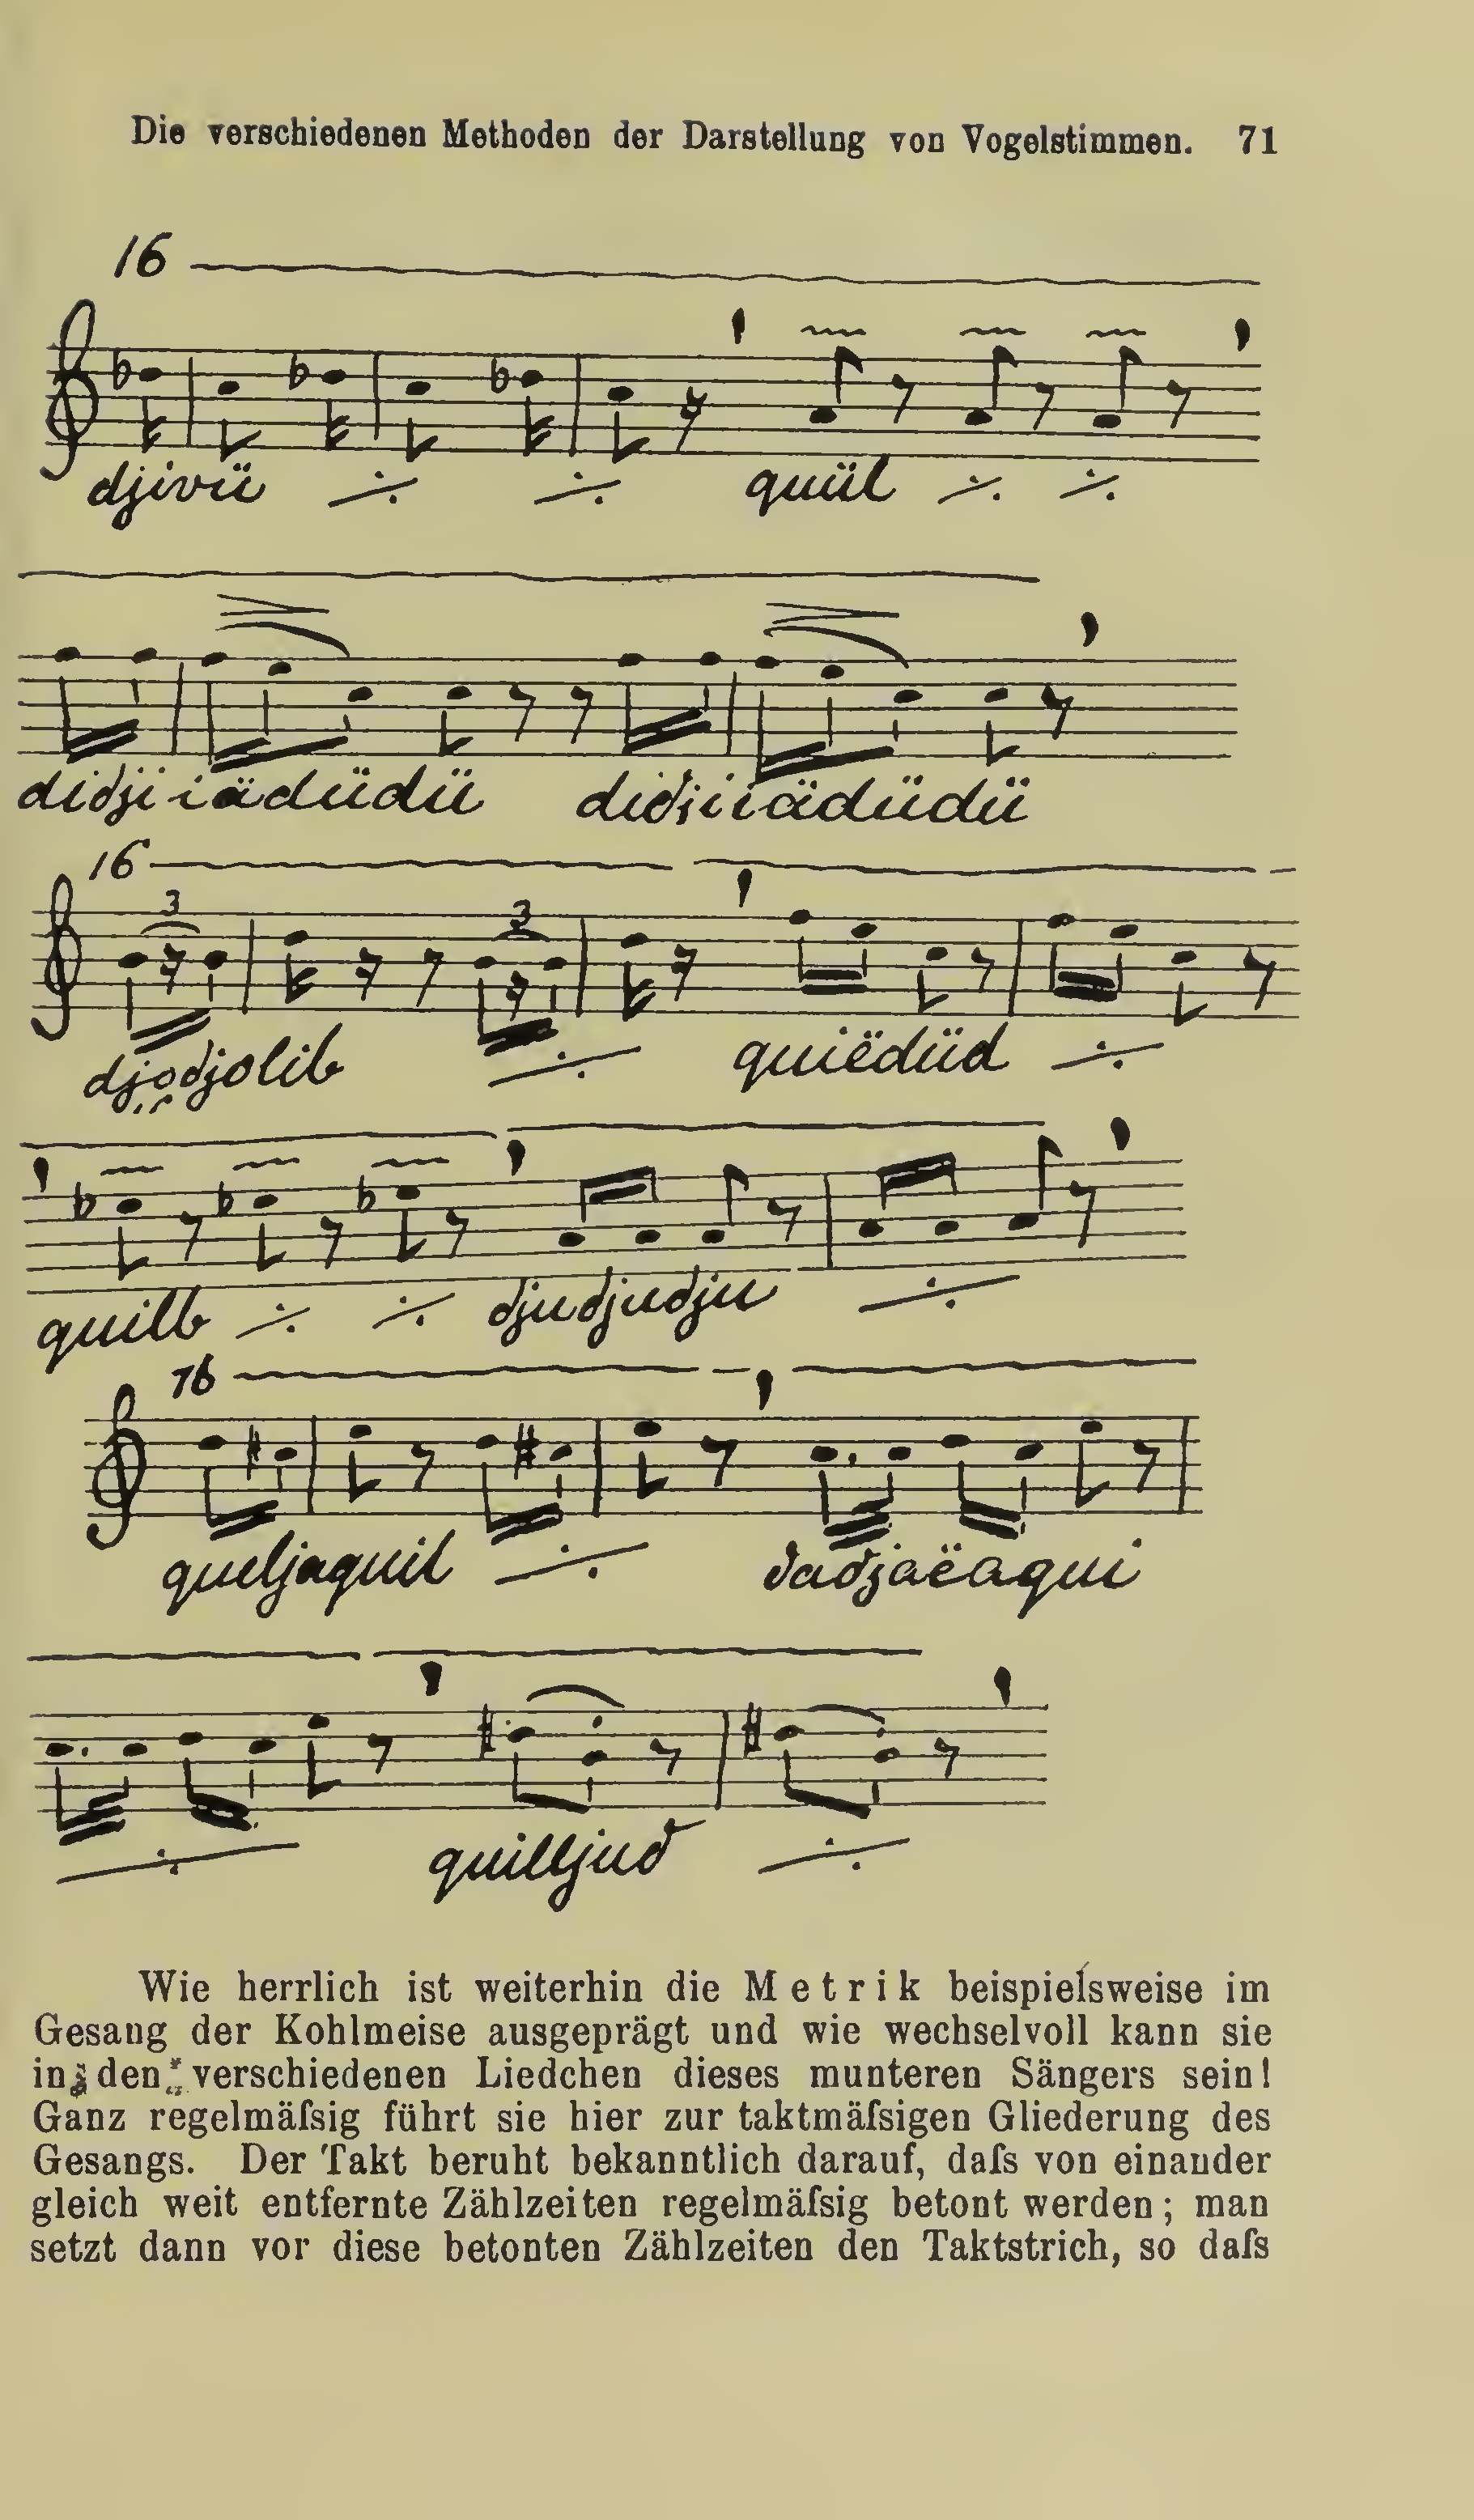 Die verschiedenen Methoden der Darstellung von Vogelstimmen. 71
16
djivü quül
didjiiädüdü didjiiädüdü
16
3 3
djodjolib quiëdüd
quilb djudjudju
16
queljaquil dadjaëaqui
quilljud
Wie herrlich ist weiterhin die Metrik beispielsweise im
Gesang der Kohlmeise ausgeprägt und wie wechselvoll kann sie
in den verschiedenen Liedchen dieses munteren Sängers sein!
Ganz regelmäſsig führt sie hier zur taktmäſsigen Gliederung des
Gesangs. Der Takt beruht bekanntlich darauf, daſs von einander
gleich weit entfernte Zählzeiten regelmäſsig betont werden; man
setzt dann vor diese betonten Zählzeiten den Taktstrich, so daſs